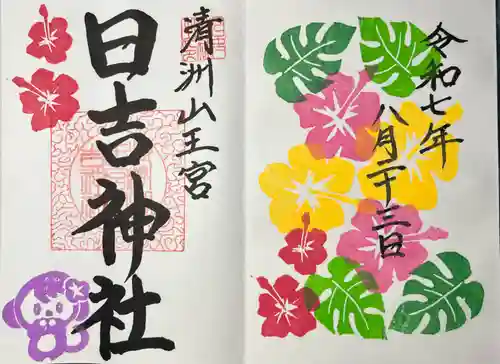 清洲山王宮
日吉神社
令和七年
八月二十三日